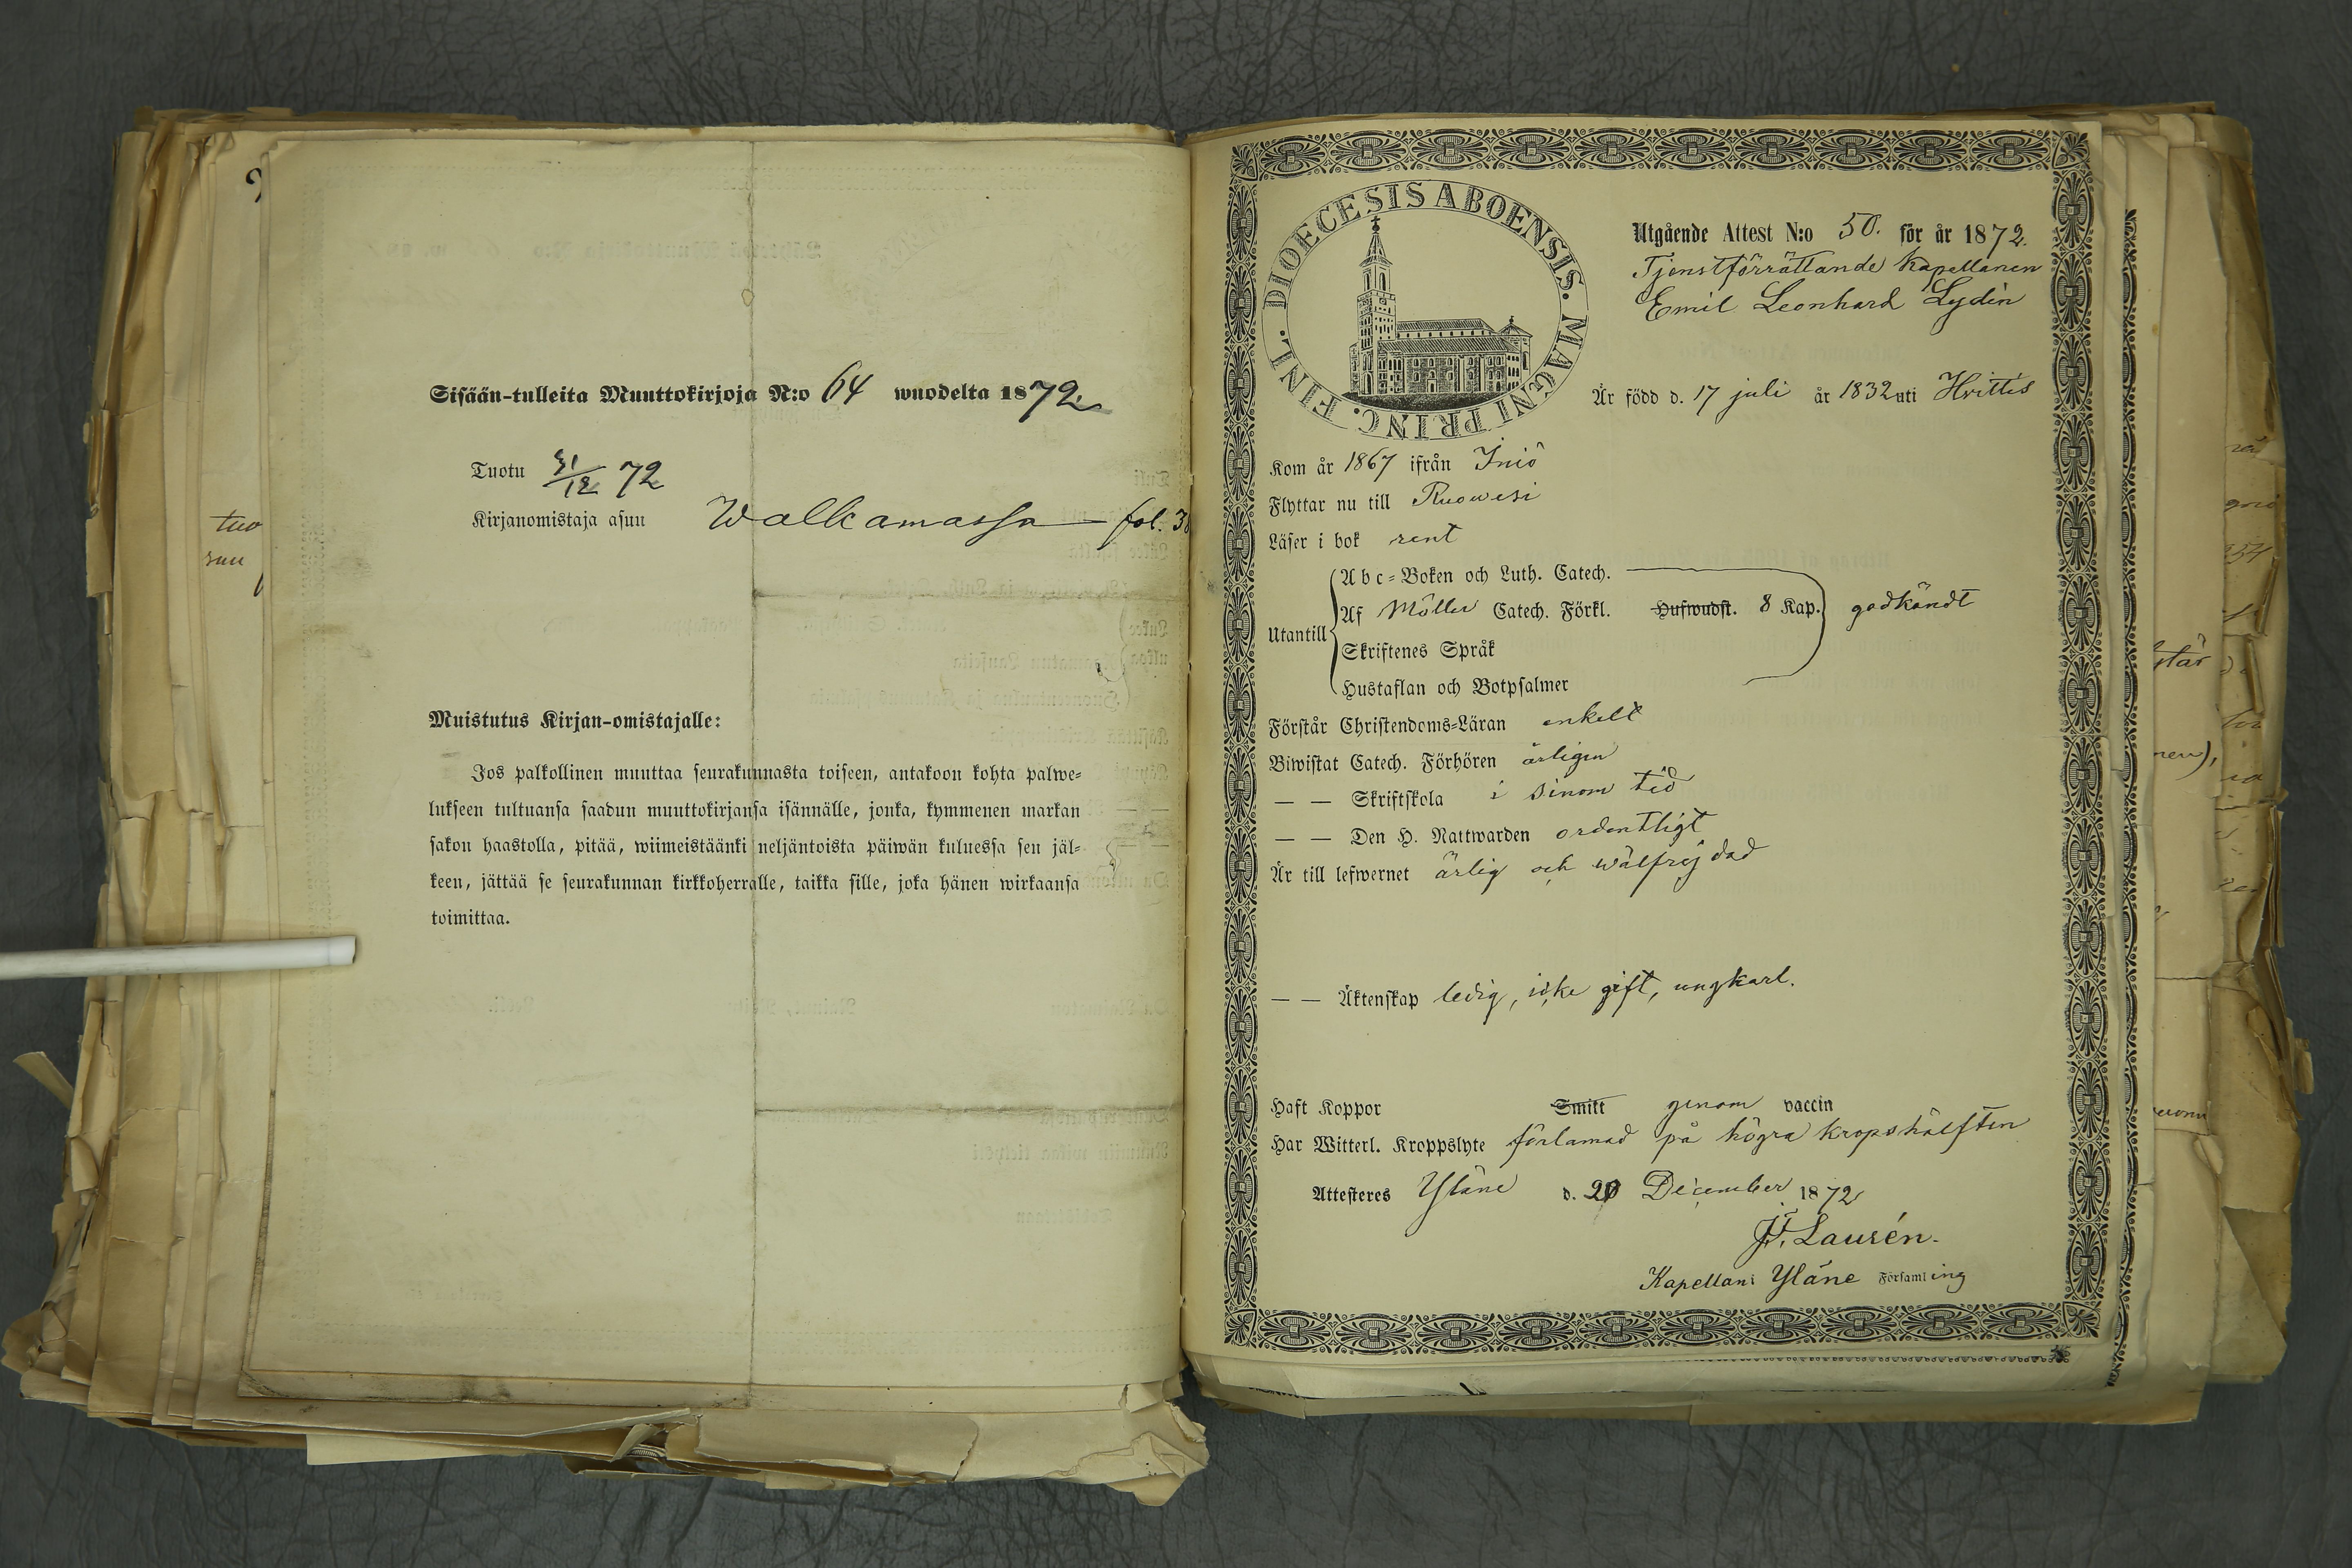 Sisään-tulleita Muuttokirjoja N:o 64 wuodelta 1872.
Tuotu 31/12 72
Kirjanomistaja asuu Walkamassa fol. 38
Muistutus Kirjan-omistajalle:
Jos palkollinen muuttaa seurakunnasta toiseen, antakoon kohta palwe-
lukseen tultuansa saadun muuttokirjansa isännälle, jonka, kymmenen markan
sakon haastolla, pitää, wiimeistäänki neljäntoista päiwän kuluessa sen jäl-
keen, jättää se seurakunnan kirkkoherralle, taikka sille, joka hänen wirkaansa
toimittaa.
DIOECESIS ABOENSIS. MAGNI PRINC. FINL.
Utgående Attest N:o 50. för år 1872.
Tjenstförrättande Kapellanen
Emil Leonhard Lydén
Är född d. 17 juli år 1832 uti Hvittis
Kom år 1867 ifrån Iniö
Flyttar nu till Ruowesi
Läser i bok rent
Utantill
Abc-Boken och Luth. Catech.
Af Möller Catech. Förkl. Hufwudst. 8 Kap. godkändt
Skriftenes Språk
Hustaflan och Botpsalmer
Förstår Christendoms-Läran enkelt
Biwistat Catech. Förhören årligen
— — Skriftskola i sinom tid
— — Den H. Nattwarden ordentligt
Är till lefwernet ärlig och wälfrejdad
— — Äktenskap ledig, icke gift, ungkarl.
Haft Koppor Smitt genom vaccin
Har Witterl. Kroppslyte förlamad på högra kropshälften
Attesteres Yläne d. 20 December 1872
J. F. Laurén.
Kapellan i Yläne Församling